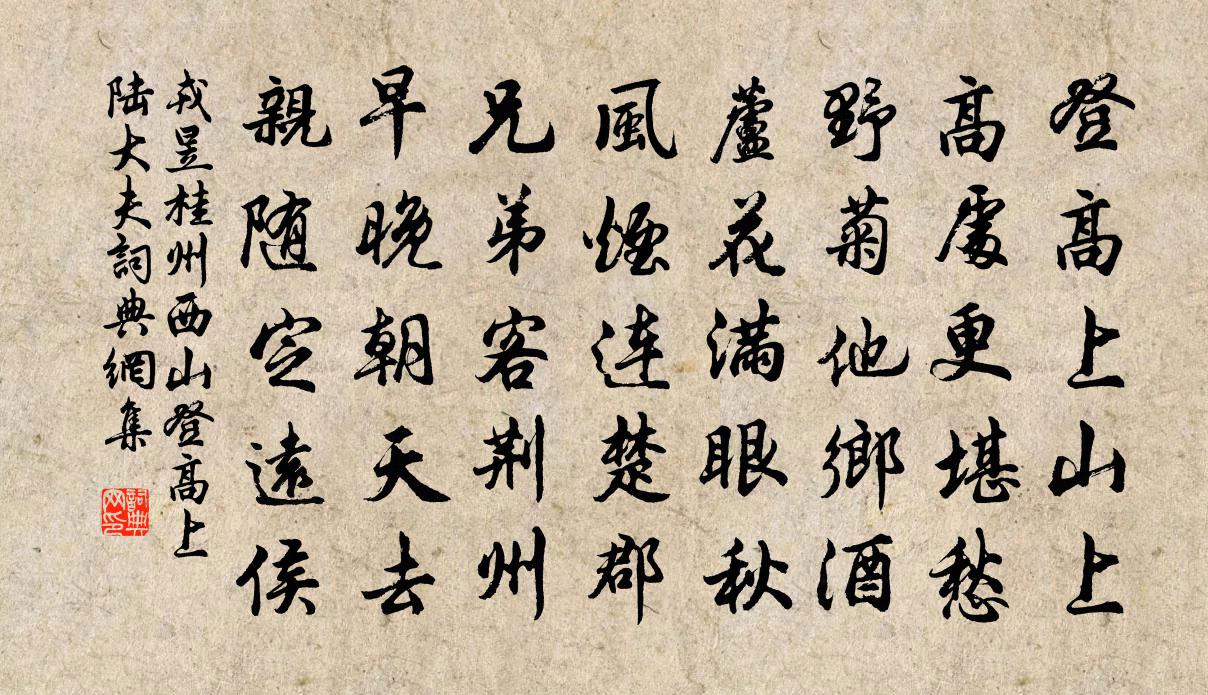 登高上山上
高處更堪愁
野菊他鄉酒
蘆花滿眼秋
風煙連楚郡
兄弟客荊州
早晚朝天去
親隨定遠侯
戎昱桂州西山登高上
陸大夫詞典網集
詞典网印